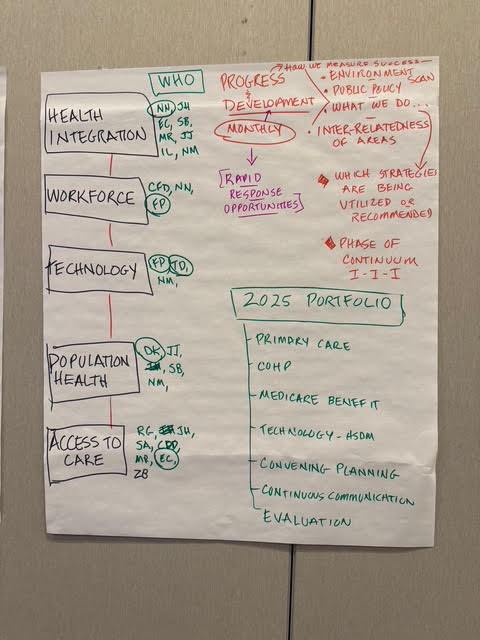 WHO
HEALTH
INTEGRATION
NH, JH
EC, SB,
MR, JJ
IL, NM
WORKFORCE
CFD, NN,
FP
TECHNOLOGY
FP TD,
NM,
POPULATION
HEALTH
DK, JJ,
SB
NM,
ACCESS TO
CARE
RG, JH,
SA,
MR, EC,
ZB
PROGRESS
&
DEVELOPMENT
MONTHLY
[RAPID
RESPONSE
OPPORTUNITIES]
HOW WE MEASURE SUCCESS—
• ENVIRONMENT
SCAN
• PUBLIC POLICY
• WHAT WE DO...
• INTER-RELATEDNESS
OF AREAS
WHICH STRATEGIES
ARE BEING
UTILIZED OR
RECOMMENDED
PHASE OF
CONTINUUM
I-I-I
2025 PORTFOLIO
PRIMARY CARE
COHP
MEDICARE BENEFIT
TECHNOLOGY-HSDM
CONVENING PLANNING
CONTINUOUS COMMUNICATION
EVALUATION